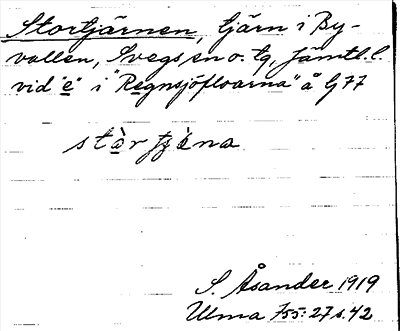 Stortjärnen, tjärn i By-
vallen, Svegs sn o. tg, Jämtl. l.
vid "e" i "Regnsjöfloarna" å G 77
S. Åsander 1919
Ulma 755:27 s. 42